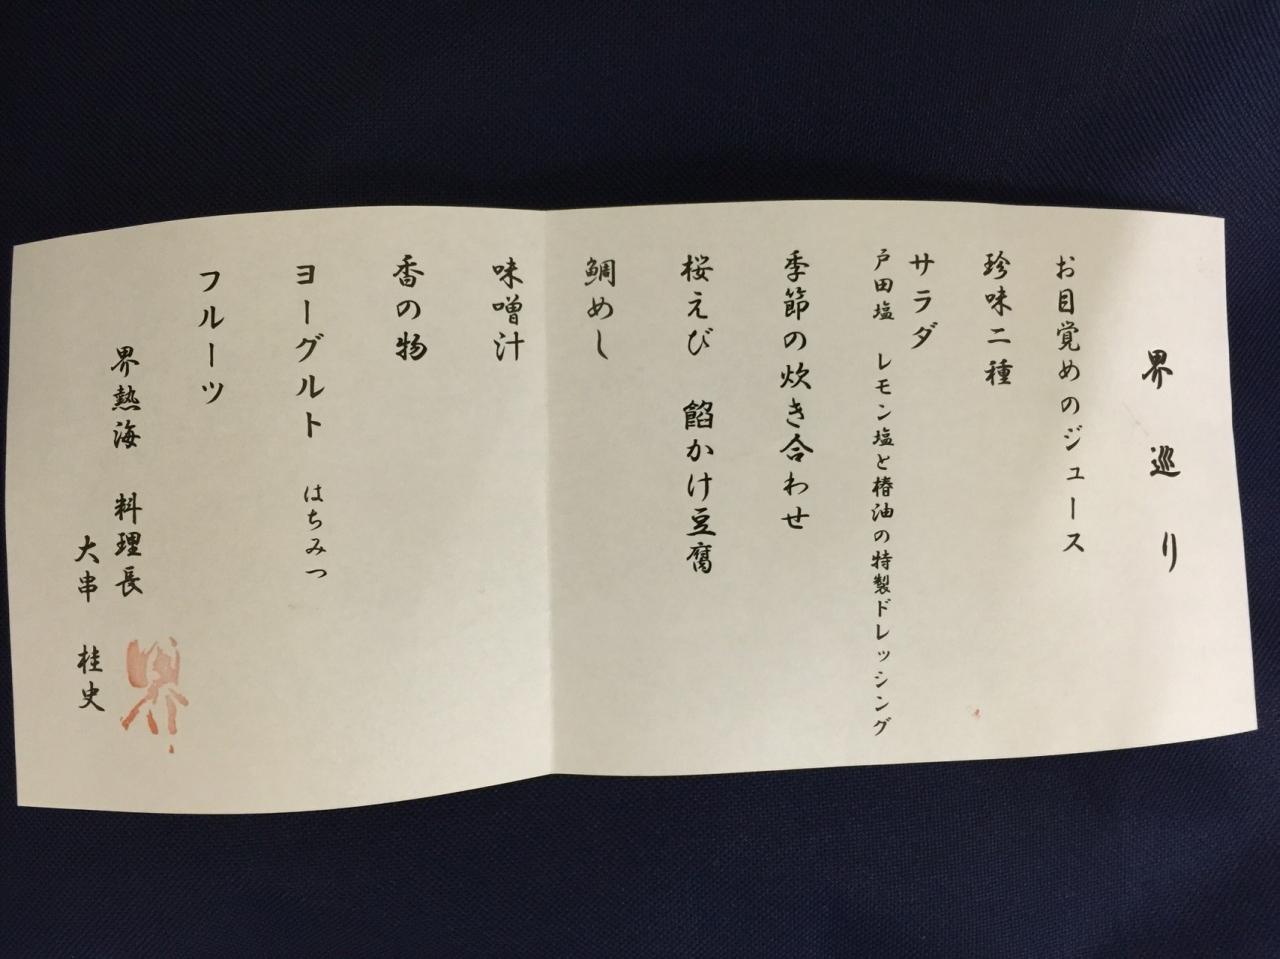 界 巡り
お目覚めのジュース
珍味二種
サラダ
戸田塩 レモン塩と椿油の特製ドレッシング
季節の炊き合わせ
桜えび 餡かけ豆腐
鯛めし
味噌汁
香の物
ヨーグルト はちみつ
フルーツ
界熱海 料理長
大串 桂史
界